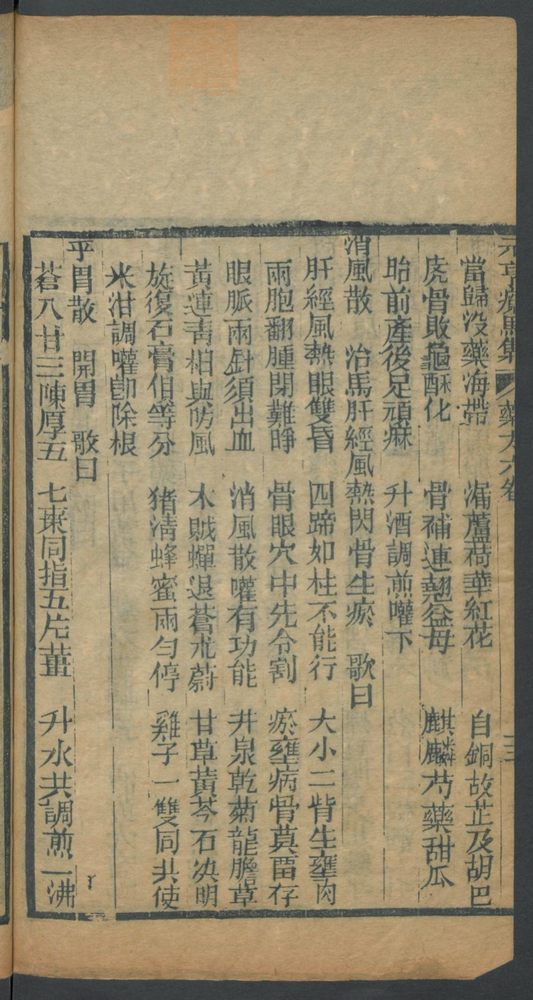 元亨療馬集 藥方 六卷 十三
當歸没藥海帶 漏蘆荷華紅花 自銅故芷及胡巴
虎骨敗龜酥化 骨補連翹益母 麒麟芍藥甜瓜
胎前產後足頑麻 升酒調煎嚾下
消風散 治馬肝經風熱閃骨生瘀 歌曰
肝經風熱眼雙昏 四蹄如柱不能行 大小二眥生壅肉
兩胞翻腫閉難睜 骨眼穴中先令割 瘀壅病骨莫畱存
眼脈兩針須出血 消風散嚾有功能 井泉乾菊龍膽草
黃連青相與防風 木賊蟬退蒼朮蔚 甘草黃芩石决明
旋復石膏伯等分 猪清蜂蜜兩勻停 雞子一雙同共使
米泔調嚾卽除根
平胃散 開胃 歌曰
蒼八甘三陳厚五 七棗同指五片薑 升水共調煎一沸